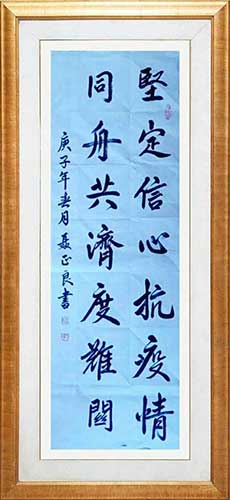 堅定信心抗疫情
同舟共濟度難關
庚子年春月聂正良書